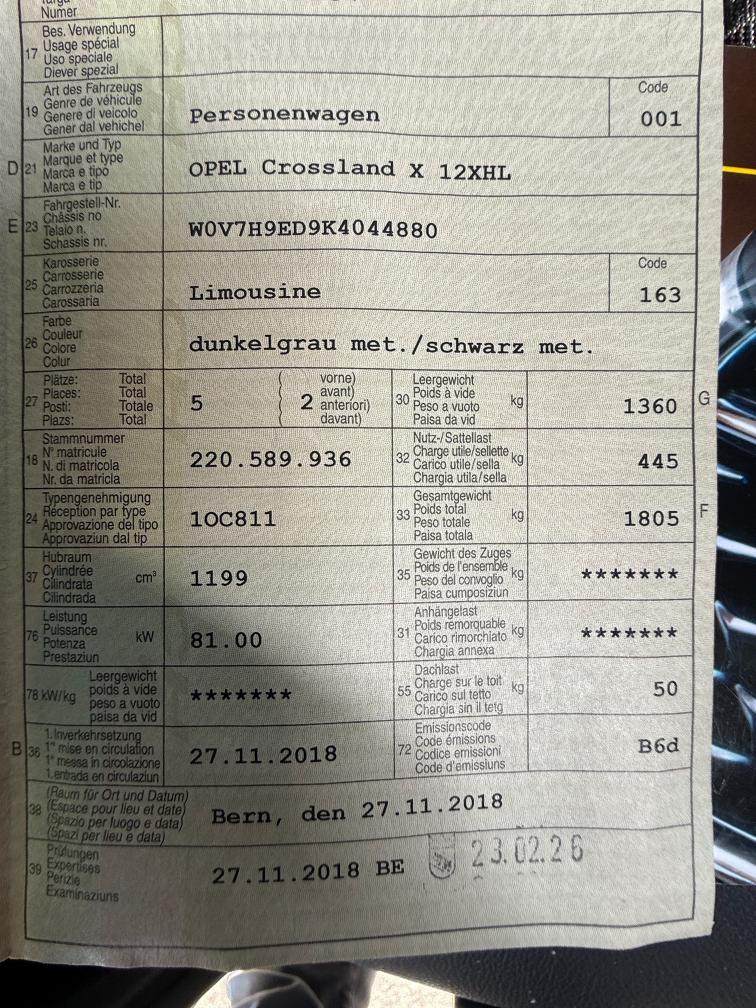 Numer
17
Bes. Verwendung
Usage spécial
Uso speciale
Diever spezial
19
Art des Fahrzeugs
Genre de véhicule
Genere di veicolo
Gener dal vehichel
Personenwagen
Code
001
D
21
Marke und Typ
Marque et type
Marca e tipo
Marca e tip
OPEL Crossland X 12XHL
E
23
Fahrgestell-Nr.
Châssis no
Telaio n.
Schassis nr.
W0V7H9ED9K4044880
25
Karosserie
Carrosserie
Carrozzeria
Carossaria
Limousine
Code
163
26
Farbe
Couleur
Colore
Colur
dunkelgrau met./schwarz met.
27
Plätze: Total
Places: Total
Posti: Totale
Plazs: Total
5
( 2 vorne)
( avant)
( anteriori)
( davant)
30
Leergewicht
Poids à vide
Peso a vuoto
Paisa da vid
kg
1360
G
18
Stammnummer
N° matricule
N. di matricola
Nr. da matricla
220.589.936
32
Nutz-/Sattellast
Charge utile/sellette
Carico utile/sella
Chargia utila/sella
kg
445
24
Typengenehmigung
Réception par type
Approvazione del tipo
Approvaziun dal tip
1OC811
33
Gesamtgewicht
Poids total
Peso totale
Paisa totala
kg
1805
F
37
Hubraum
Cylindrée
Cilindrata
Cilindrada
cm³
1199
35
Gewicht des Zuges
Poids de l'ensemble
Peso del convoglio
Paisa cumposiziun
kg
*******
76
Leistung
Puissance
Potenza
Prestaziun
kW
81.00
31
Anhängelast
Poids remorquable
Carico rimorchiato
Chargia annexa
kg
*******
78 kW/kg
Leergewicht
poids à vide
peso a vuoto
paisa da vid
*******
55
Dachlast
Charge sur le toit
Carico sul tetto
Chargia sin il tetg
kg
50
B
36
1. Inverkehrsetzung
1re mise en circulation
1a messa in circolazione
1. entrada en circulaziun
27.11.2018
72
Emissionscode
Code émissions
Codice emissioni
Code d'emissiuns
B6d
38
(Raum für Ort und Datum)
(Espace pour lieu et date)
(Spazio per luogo e data)
(Spazi per lieu e data)
Bern, den 27.11.2018
39
Prüfungen
Expertises
Perizie
Examinaziuns
27.11.2018 BE
23.02.26